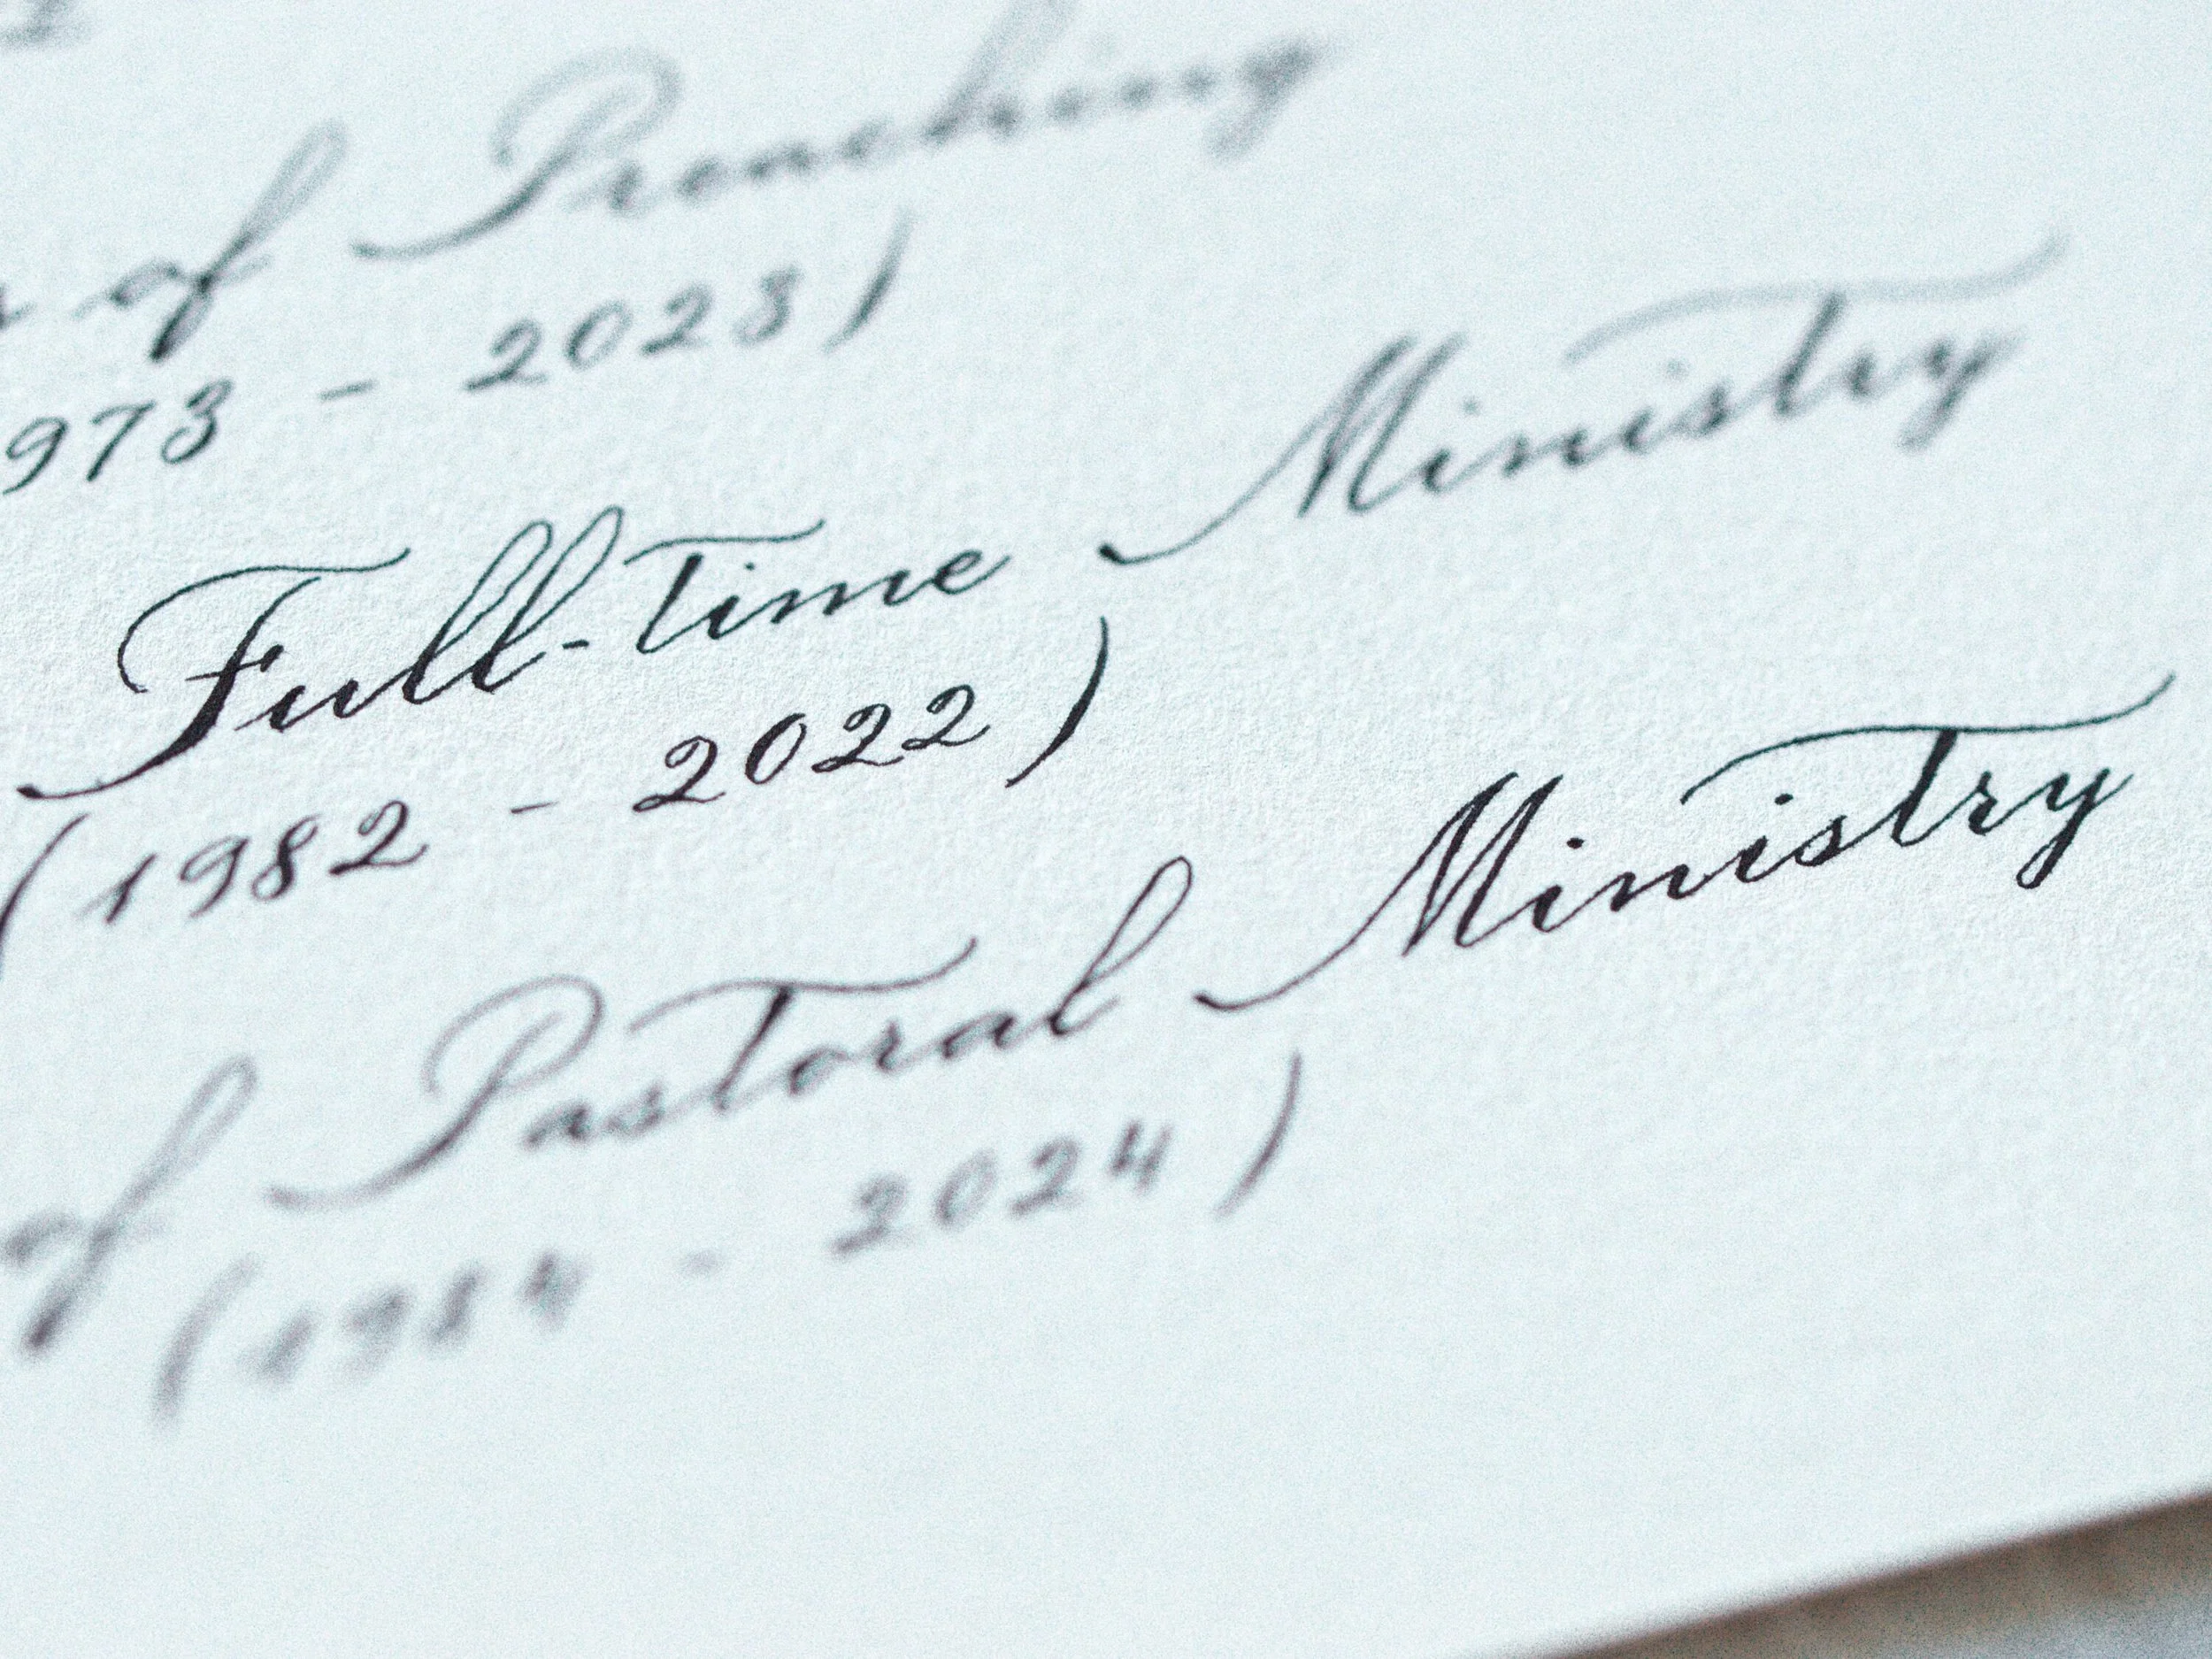 of Preaching
973 - 2023)
Full-time Ministry
(1982 - 2022)
of Pastoral Ministry
(1984 - 2024)